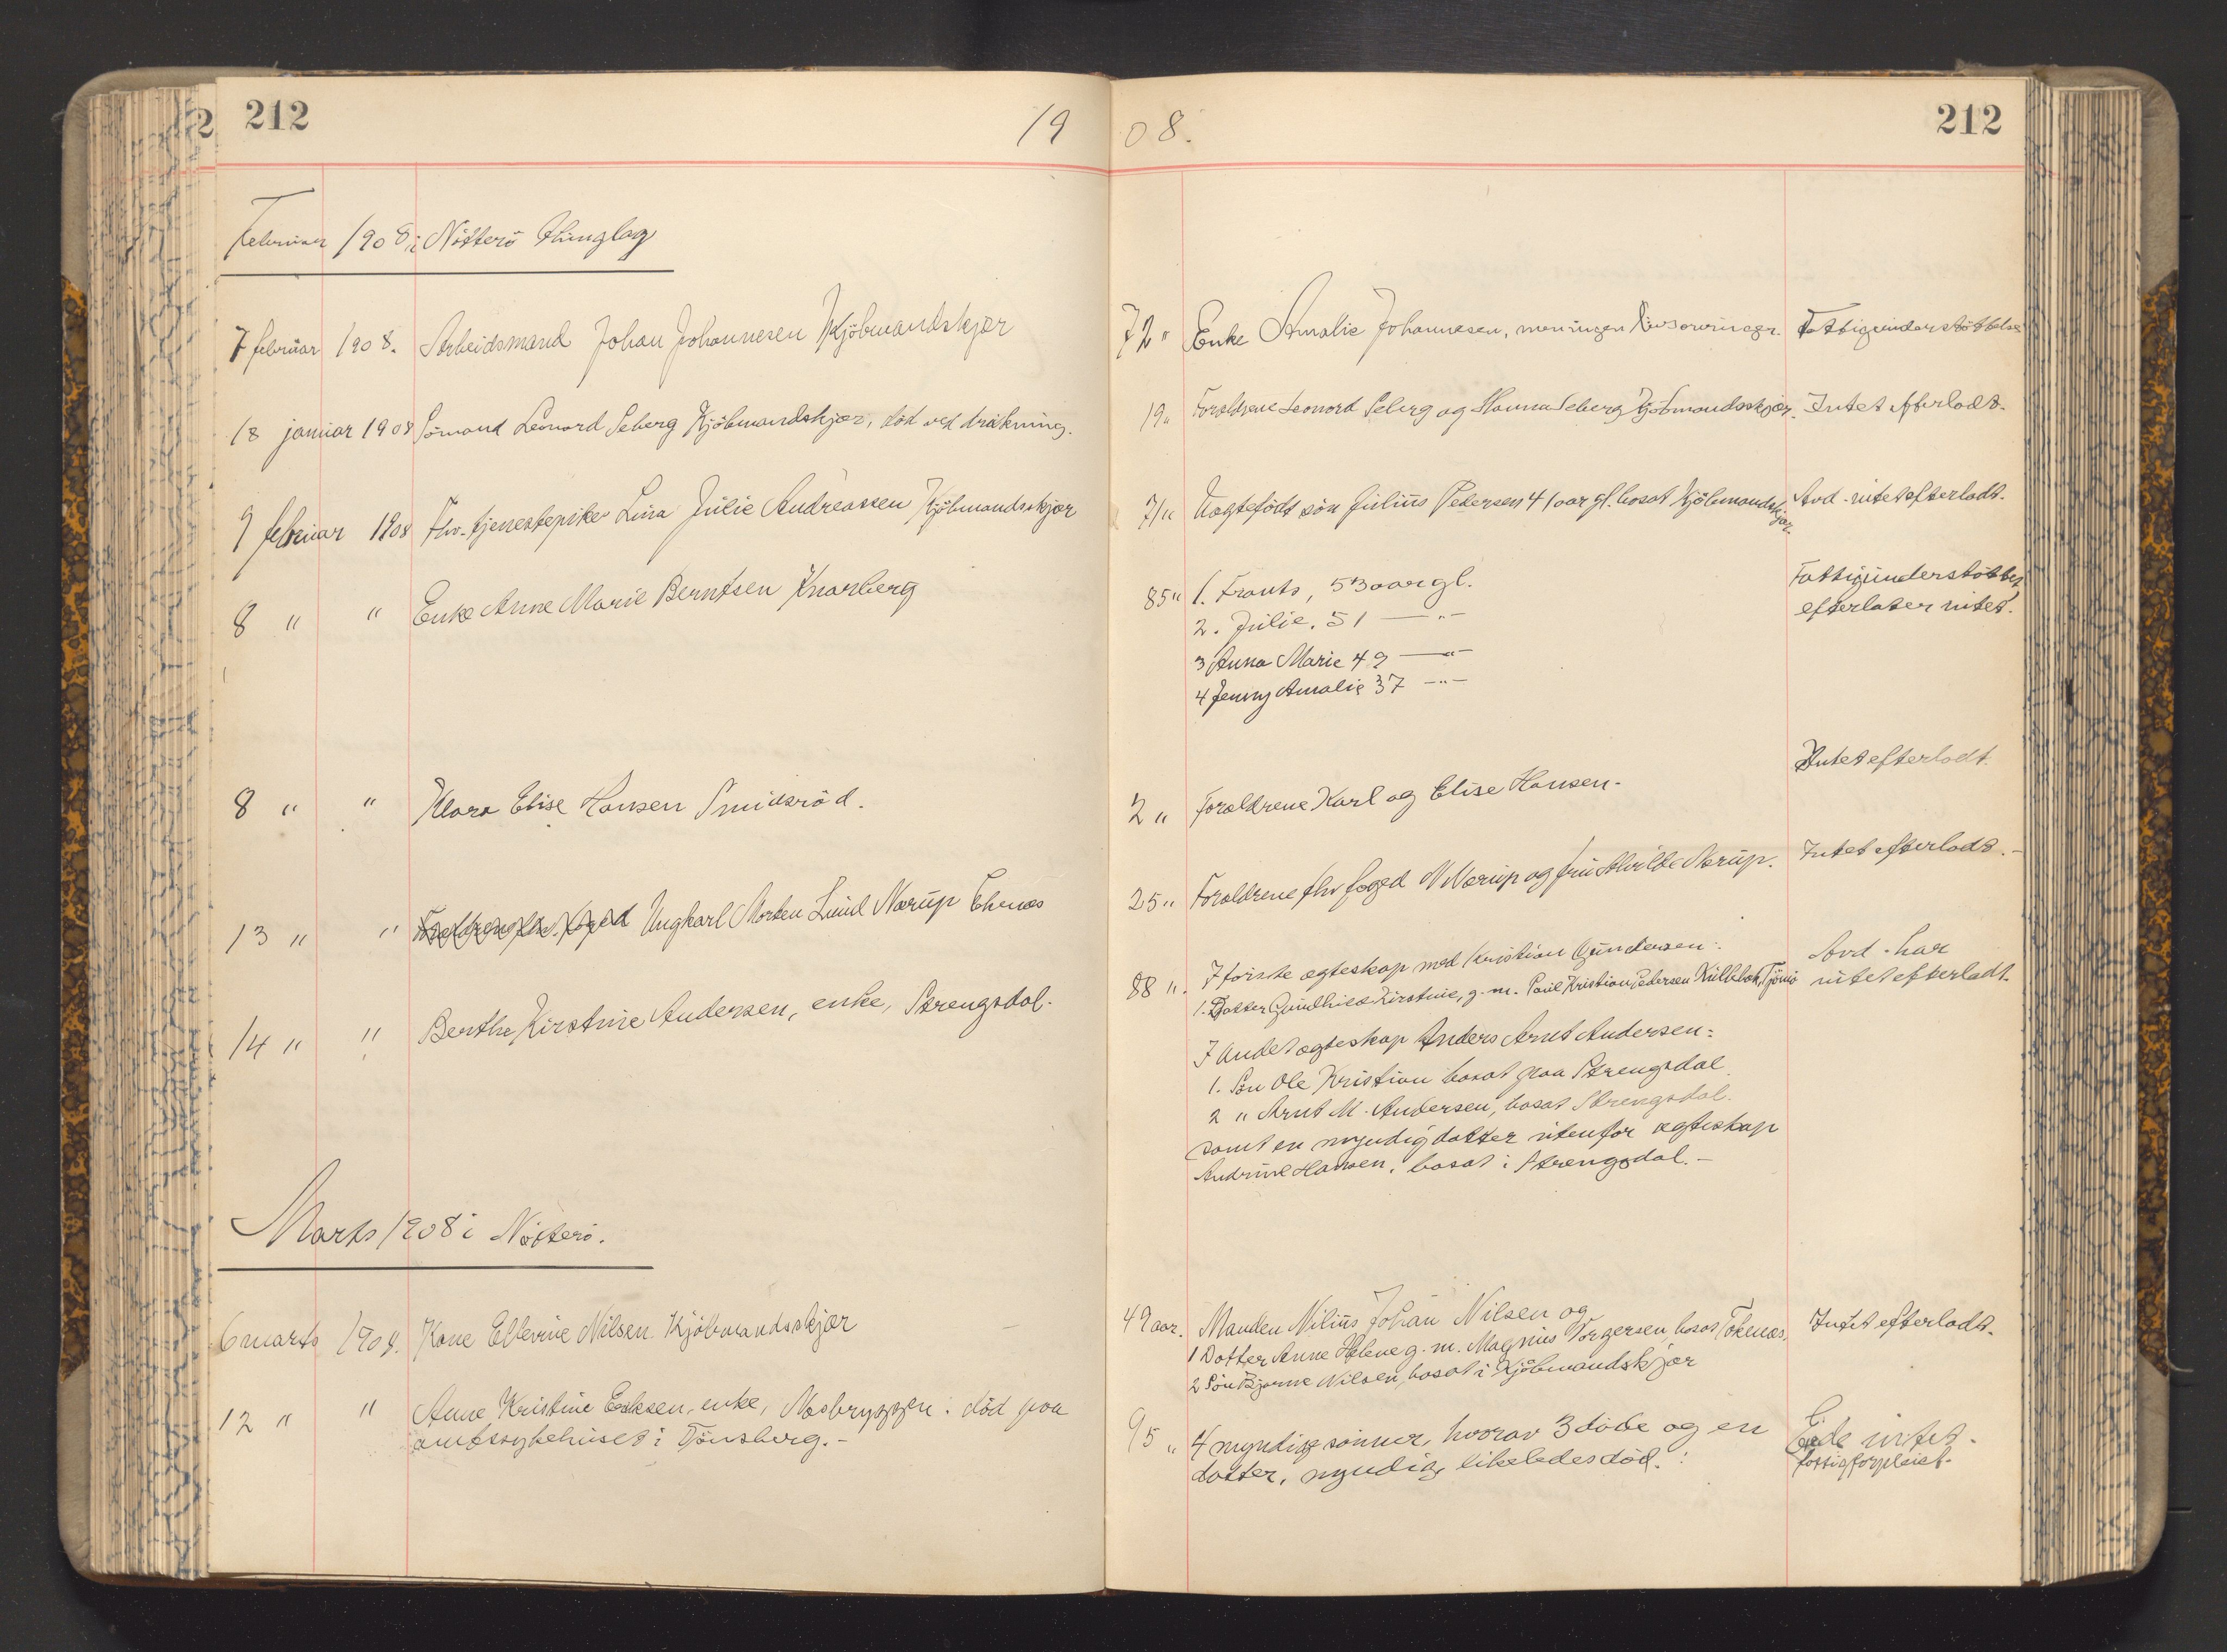 212
1908.
212
Februar 1908 i Nötterö thinglag
7 februar 1908. Arbeidsmand Johan Johannesen Kjöbmandskjær
72 " Enke Amalie Johannesen, men ingen livsarvinger. Fattigunderstöttelse
18 januar 1908 Sömand Leonard Seberg Kjöbmandskjær, död ved drukning.
19 " Forældrene Leonard Seberg og Hanna Seberg Kjöbmandsskjær. Intet efterladt.
9 februar 1908 Fhv. tjenestepike Lina Julie Andreassen Kjöbmandsskjær
71 " Uægtefödt sön Julius Pedersen 41 aar gl. bosat Kjöbmandskjær. Avd. intet efterladt.
8 " " Enke Anne Marie Berntsen Knarberg
85 " 1. Frants, 53 aar gl.
2. Julie, 51 — " —
3 Anna Marie 49 — " —
4 Jenny Amalie 37 — " —
Fattigunderstöttet,
efterlater intet.
8 " " Klara Elise Hansen Smidsröd.
2 " Forældrene Karl og Elise Hansen.
Intet efterladt.
13 " " Ungkarl Morten Lund Narup Ekenæs
25 " Forældrene fhv foged N Narup og fru Narup. Intet efterladt.
14 " " Berthe Kirstine Andersen, enke, Strengsdal.
88 ". I förste ægteskap med Kristian Gundersen:
1. Datter Gunhild Kirstine, g. m. Paul Kristian Pedersen Tjömö
I andet ægteskap Anders Arnt Andersen:
1. Sön Ole Kristian bosat paa Strengsdal
2 " Arnt M. Andersen, bosat Strengsdal.
samt en myndig datter utenfor ægteskap
Andrine Hansen, bosat i Strengsdal. —
Avd. har
intet efterladt.
Marts 1908 i Nötterö.
6 marts 1908. Kone Ellevine Nilsen Kjöbmandsskjær
49 aar. Manden Nilius Johan Nilsen og
1 Datter Anne Helene g. m. Magnus Torgersen, bosat Tokenæs,
2 Sön Bjarne Nilsen, bosat i Kjöbmandskjær
Intet efterladt.
12 " " Anne Kristine Eriksen, enke, Næsbryggen. död paa
amtssykehuset i Tönsberg. —
95 " 4 myndige sönner, hvorav 3 döde og en
datter, myndig likeledes död.
Eiede intet.
fattigforpleiet.